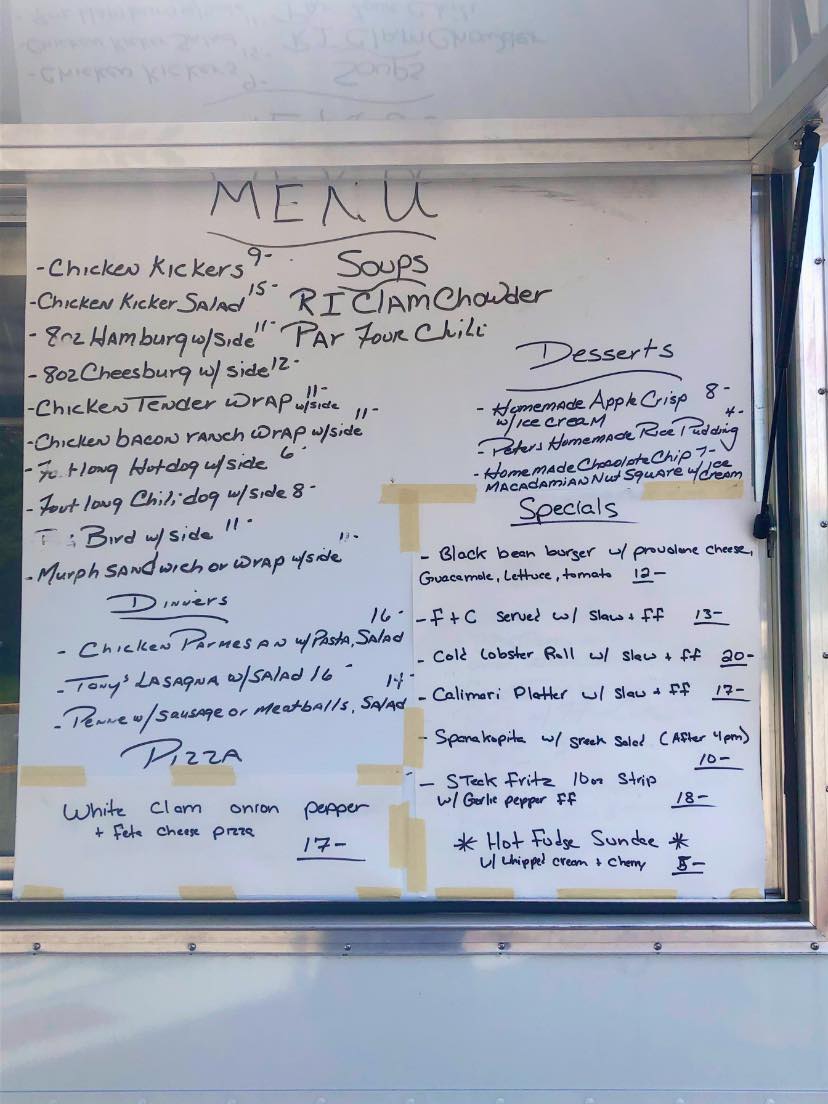 MENU
- Chicken Kickers 9-
- Chicken Kicker Salad 15-
- 8oz Hamburg w/side 11-
- 8oz Cheesburg w/ side 12-
- Chicken Tender Wrap w/side 11-
- Chicken bacon ranch Wrap w/side 11-
- long Hotdog w/side 6-
- Foot long Chili dog w/side 8-
Bird w/ side 11-
- Murph Sandwich or Wrap w/side
Soups
RI Clam Chowder
Par Four Chili
Dinners
- Chicken Parmesan w/Pasta, Salad 16-
- Tony's Lasagna w/Salad 16-
- Penne w/ Sausage or Meatballs, Salad 14-
Pizza
White Clam onion pepper
+ Feta cheese pizza
17-
Desserts
- Homemade Apple Crisp 8-
w/ice cream
- Peters Homemade Rice Pudding 4-
- Homemade Chocolate Chip 7-
Macadamian Nut Square w/Ice Cream
Specials
- Black bean burger w/ provolone cheese,
Guacamole, Lettuce, tomato 12-
- F + C served w/ slaw + ff 13-
- Cold Lobster Roll w/ slaw + ff 20-
- Calimari Platter w/ slaw + ff 17-
- Spanakopita w/ greek salad (After 4pm)
10-
- Steak Fritz 10oz Strip
w/ Garlic pepper ff 18-
* Hot Fudge Sundae *
w/ whipped cream + cherry